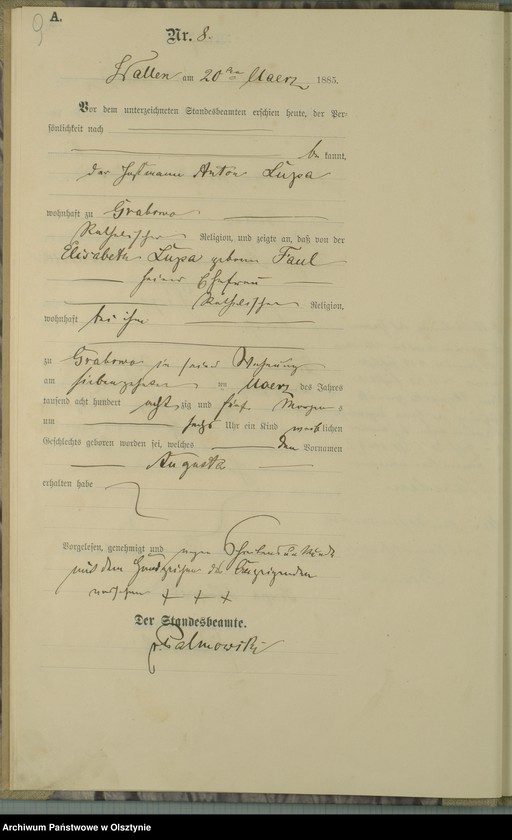 9
A.
Nr. 8.
Wallen am 20ten Maerz 1885.
Vor dem unterzeichneten Standesbeamten erschien heute, der Per-
sönlichkeit nach
be kannt,
der Hofmann Anton Lupa
wohnhaft zu Grabowo
Katholischer Religion, und zeigte an, daß von der
Elisabeth Lupa geborne Faul
seiner Ehefrau
Katholischer Religion,
wohnhaft bei ihm
zu Grabowo in seiner Wohnung
am siebenzehnten ten Maerz des Jahres
tausend acht hundert acht zig und fünf Morgens
um sechs Uhr ein Kind weiblichen
Geschlechts geboren worden sei, welches den Vornamen
Augusta
erhalten habe
Vorgelesen, genehmigt und wegen Schreibensunkunde
mit dem Handzeichen des Anzeigenden
versehen + + +
Der Standesbeamte.
v. Palmowski
Archiwum Państwowe w Olsztynie